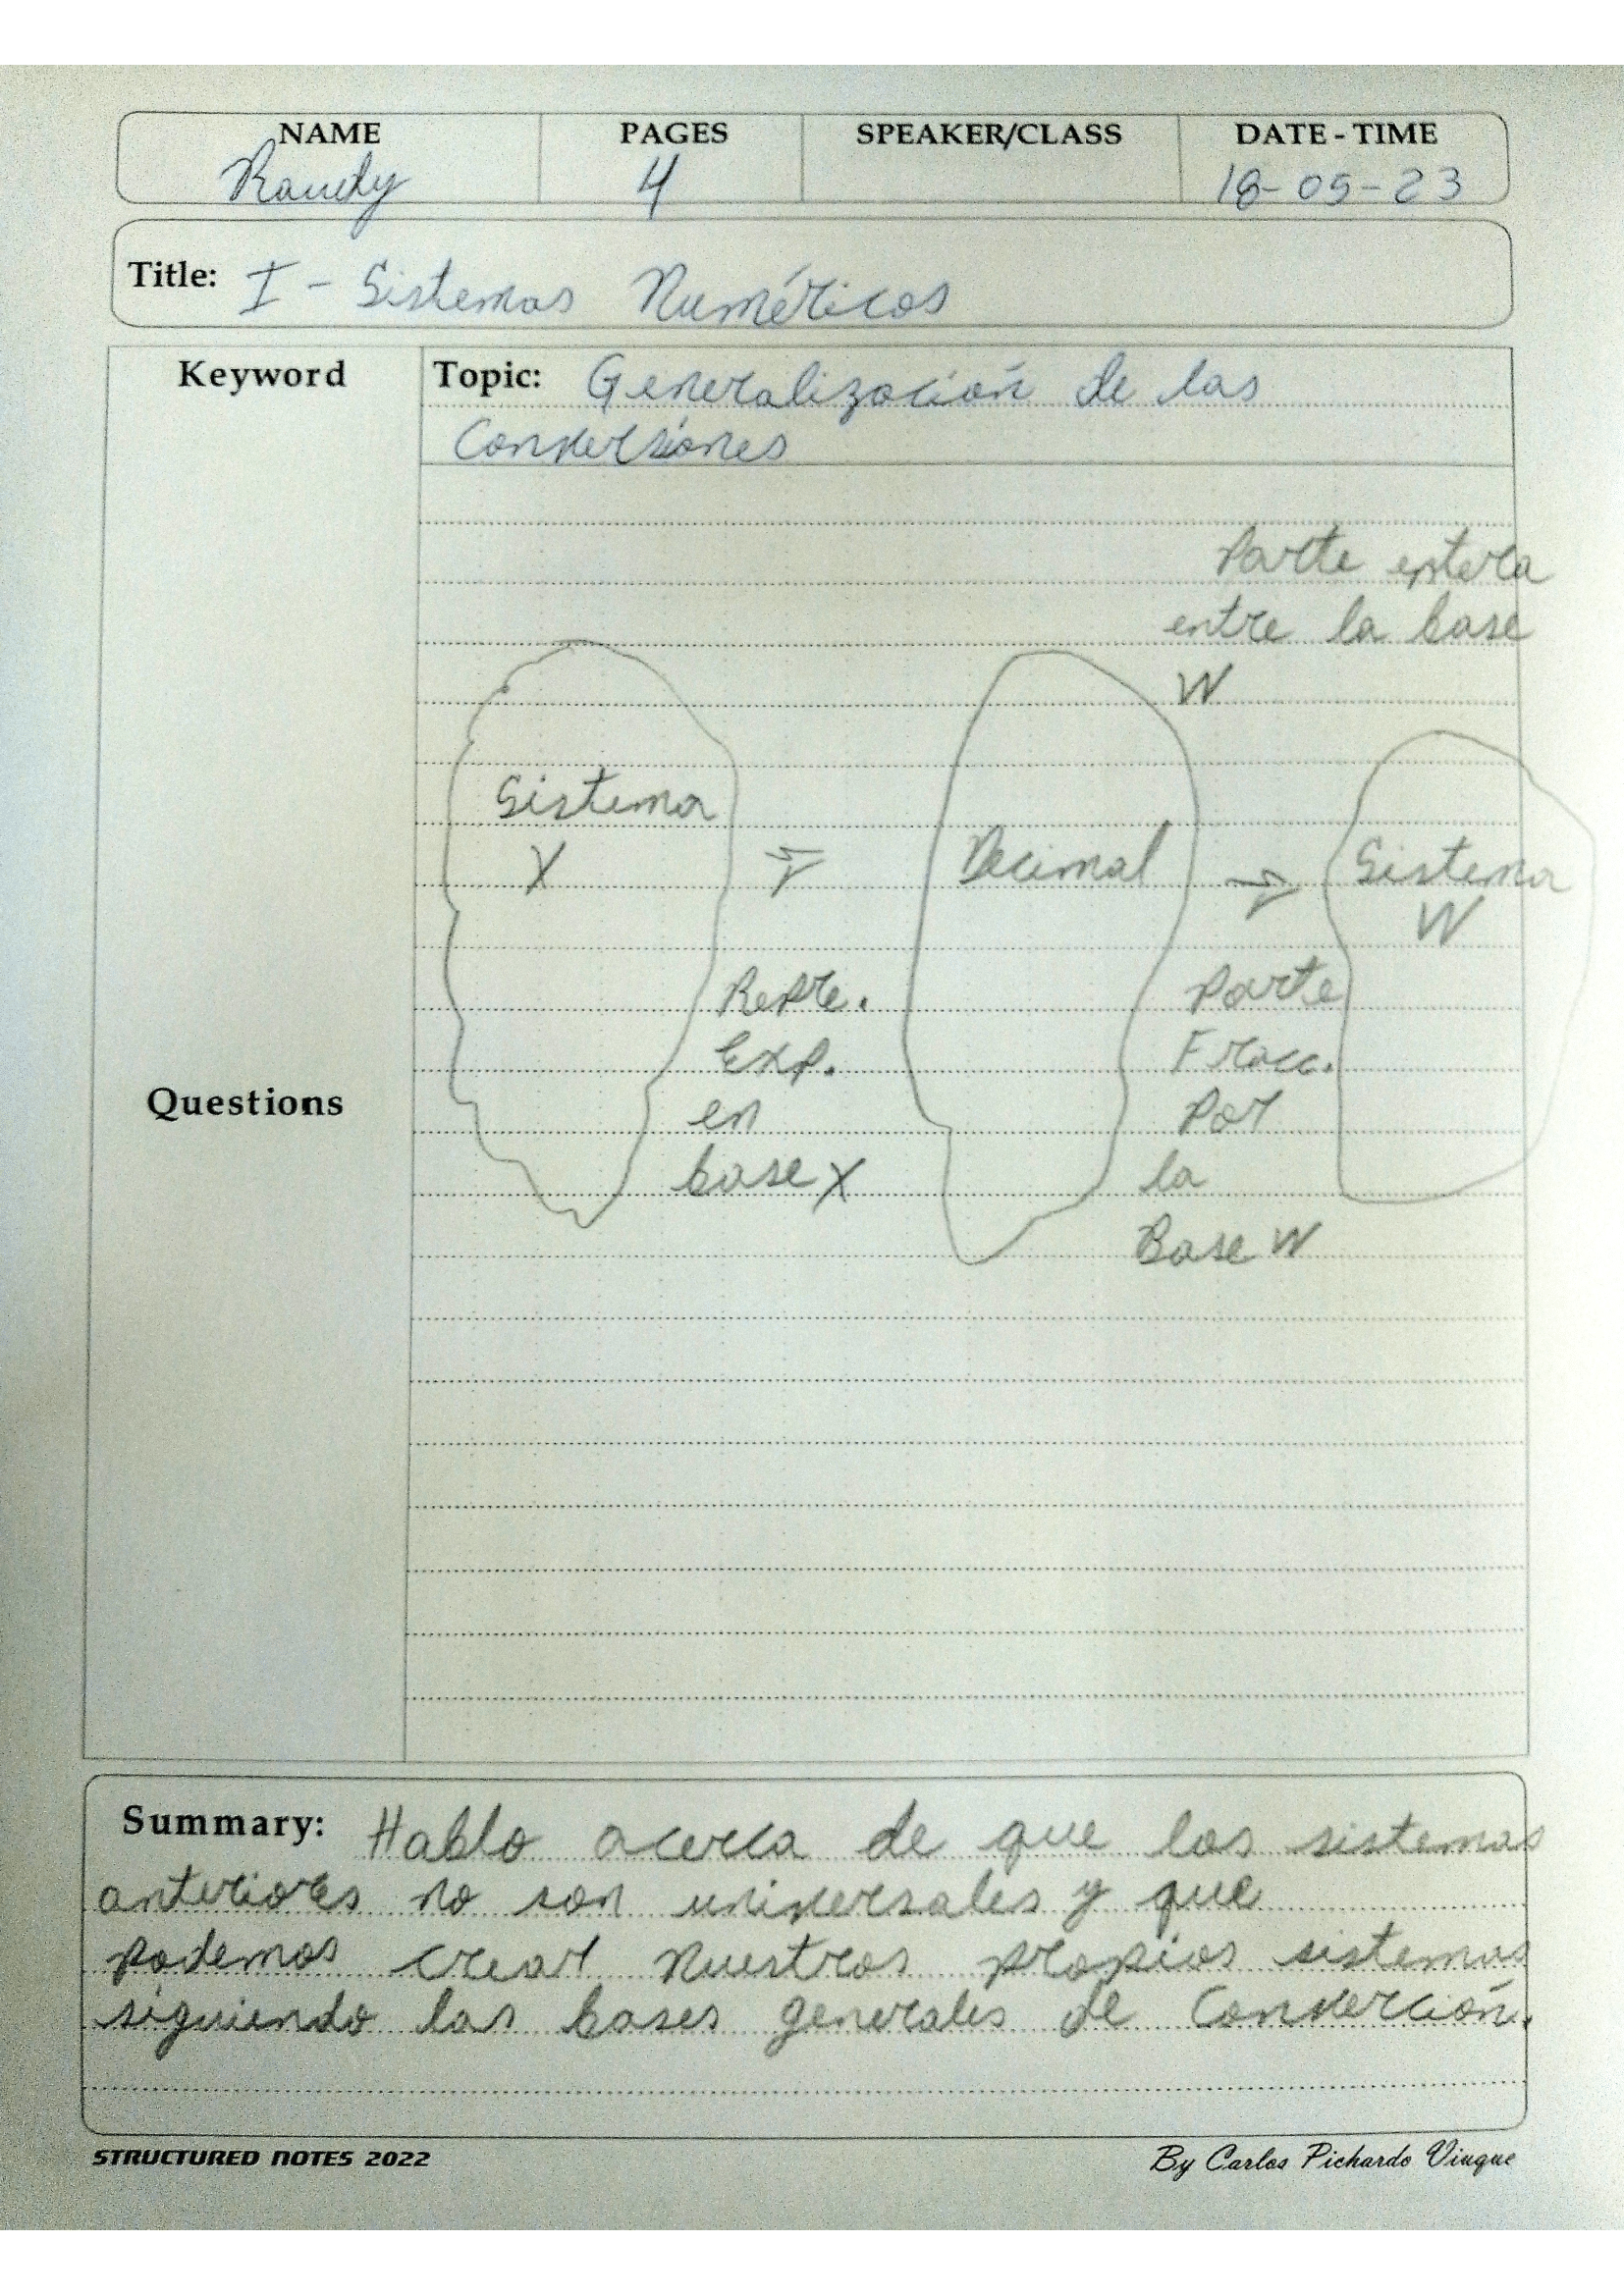 NAME PAGES SPEAKER/CLASS DATE - TIME
Randy 4 18-05-23
Title: I - Sistemas Numéricos
Keyword
Topic: Generalización de las
Conversiones
Parte entera
entre la base
W
Sistema
X
Decimal
Sistema
W
Repre.
Exp.
en
base X
Parte
Fracc.
Por
la
Base W
Questions
Summary: Hablo acerca de que los sistemas
anteriores no son universales y que
podemos crear nuestros propios sistemas
siguiendo las bases generales de Converción.
STRUCTURED NOTES 2022
By Carlos Pichardo Viuque